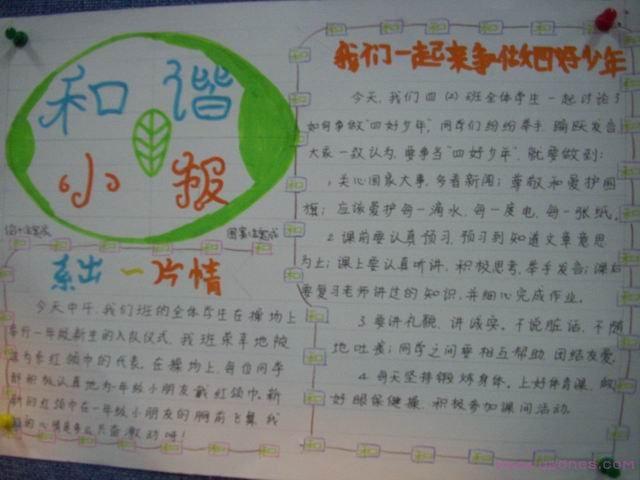 和谐
小报
系出一片情
今天中午,我们班的全体学生在操场上
举行一年级新生的入队仪式,我班荣幸地被
选为系红领巾的代表。在操场上,每位同学
都积极认真地为一年级小朋友戴红领巾。新
新的红领巾在一年级小朋友的胸前飞舞,我
的心情是多么只激动呀!
我们一起来争做四好少年
今天,我们四(2)班全体学生一起讨论了
如何争做“四好少年”,同学们纷纷举手,踊跃发言,
大家一致认为,要争当“四好少年”就要做到:
1.关心国家大事,多看新闻;尊敬和爱护国
旗;应该爱护每一滴水、每一度电、每一张纸。
2.课前要认真预习,预习到知道文章意思
为止;课上要认真听讲,积极思考,举手发言;课后
要复习老师讲过的知识,并细心完成作业。
3.要讲礼貌、讲诚实。不说脏话、不随
地吐痰;同学之间要相互帮助,团结友爱。
4.每天坚持锻炼身体。上好体育课,做
好眼保健操,积极参加课间活动。